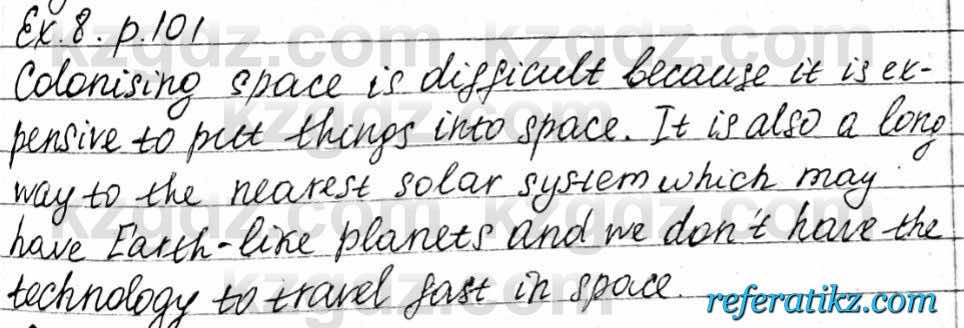 Ex.8.p.101
Colonising space is difficult because it is ex-
pensive to put things into space. It is also a long
way to the nearest solar system which may
have Earth-like planets and we don't have the
technology to travel fast in space.
referatikz.com